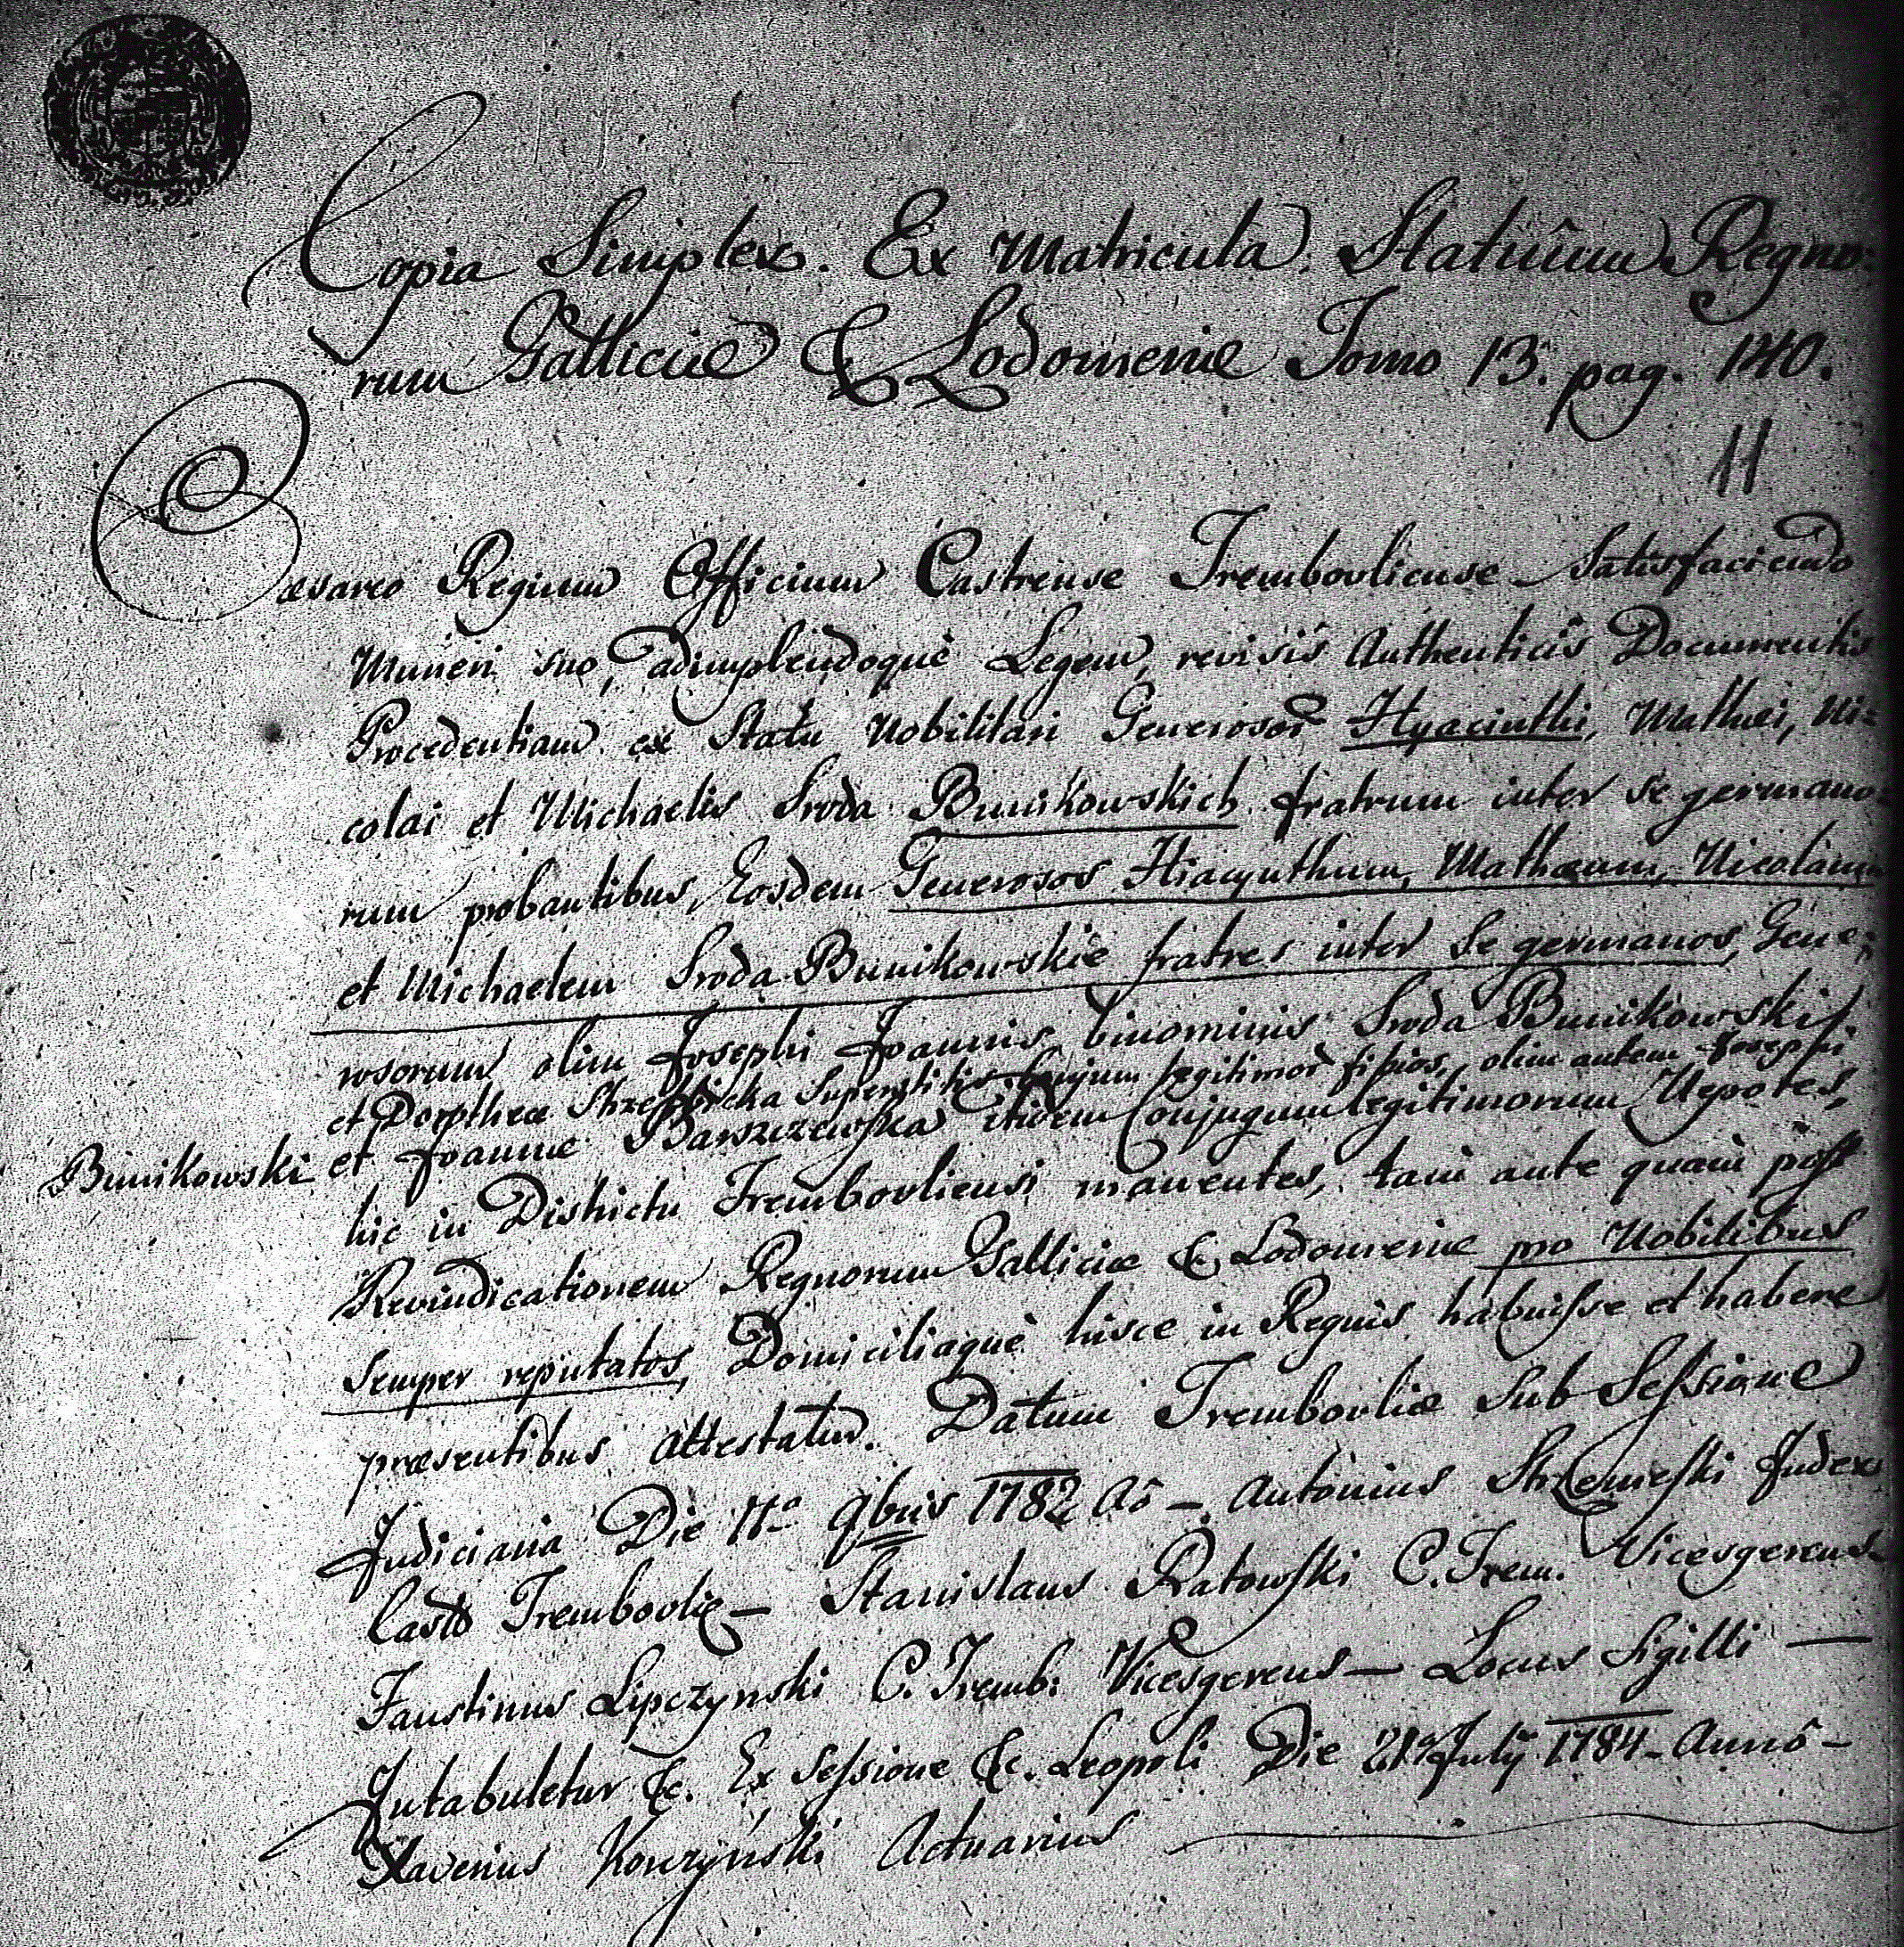 Copia Simplex. Ex Matricula Statuum Regno:
rum Galliciæ & Lodomeriæ Tomo 13. pag. 140.
11
Cæsareo Regium Officium Castrense Trembovliense Satisfaciendo
Muneri suo, adimplendoquè Legem, revisis Authenticis Documentis
Procedentiam ex Statu Nobilitari Generosor Hyacinthi, Mathæi, Ni=
colai et Michaelis Sroda Bunikowskich fratrum inter se germano=
rum probantibus, Eosdem Generosos Hiacynthum, Mathæum, Nicolaum
et Michaelem Sroda Bunikowskie fratres inter Se germanos, Gene=
rosorum olim Josephi Joannis binominis Sroda Bunikowski
et Dorotheæ Superstitis Conjugum legitimor filios, olim autem Josephi
Bunikowski et Joannæ Barszczewska itidem Conjugum legitimorum Nepotes,
hic in Districtu Trembovliensi manentes, tam ante quam post
Revindicationem Regnorum Galliciæ & Lodomeriæ pro Nobilibus
Semper reputatos, Domiciliaquè hisce in Regnis habuisse et habere
præsentibus attestatur. Datum Trembovliæ Sub Sessione
Judiciaria Die 11a 9bris 1782 Aô — Antonius Strzemeski Judex
Castr Trembovliæ — Stanislaus Ratowski C. Trem. Vicesgerens
Faustinus Lipczynski C. Tremb: Vicesgerens — Locus Sigilli —
Intabuletur &c. Ex Sessione &c. Leopoli Die 21a July 1784 — Annô —
Xaverius Konczyński Actuarius